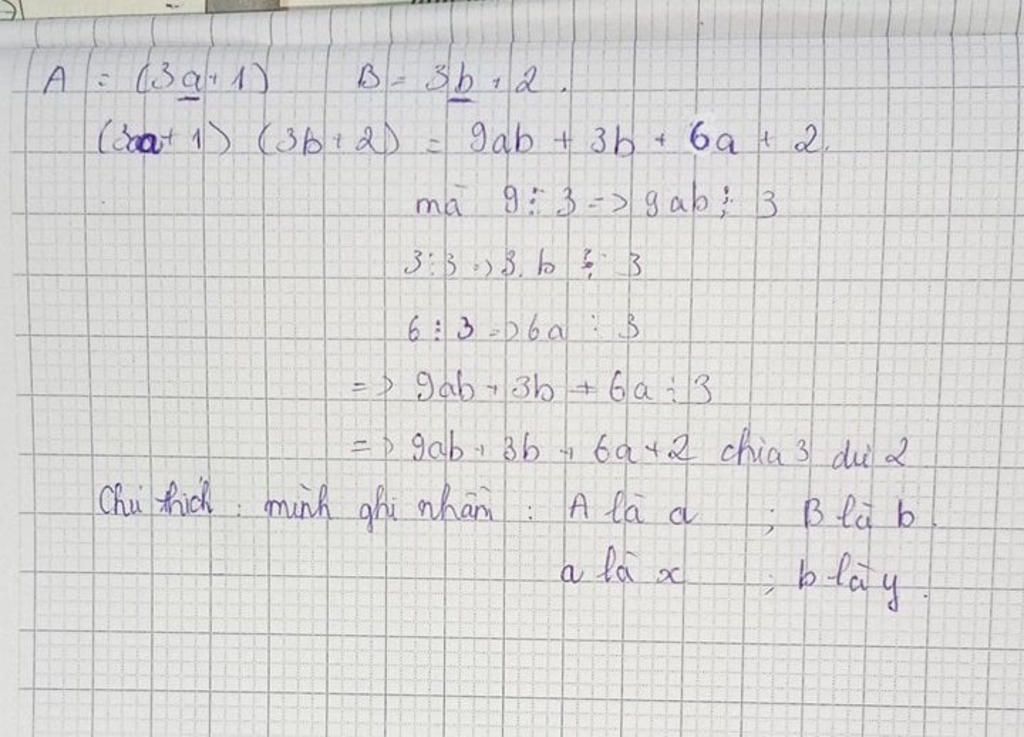 A = (3a+1) B = 3b+2.
(3a+1) (3b+2) = 9ab + 3b + 6a + 2.
mà 9⋮3 => 9ab⋮3
3⋮3 => 3.b ⋮ 3
6⋮3 => 6a ⋮ 3
=> 9ab + 3b + 6a ⋮ 3
=> 9ab + 3b + 6a + 2 chia 3 dư 2
Chú thích : mình ghi nhầm : A là a ; B là b.
a là x ; b là y.